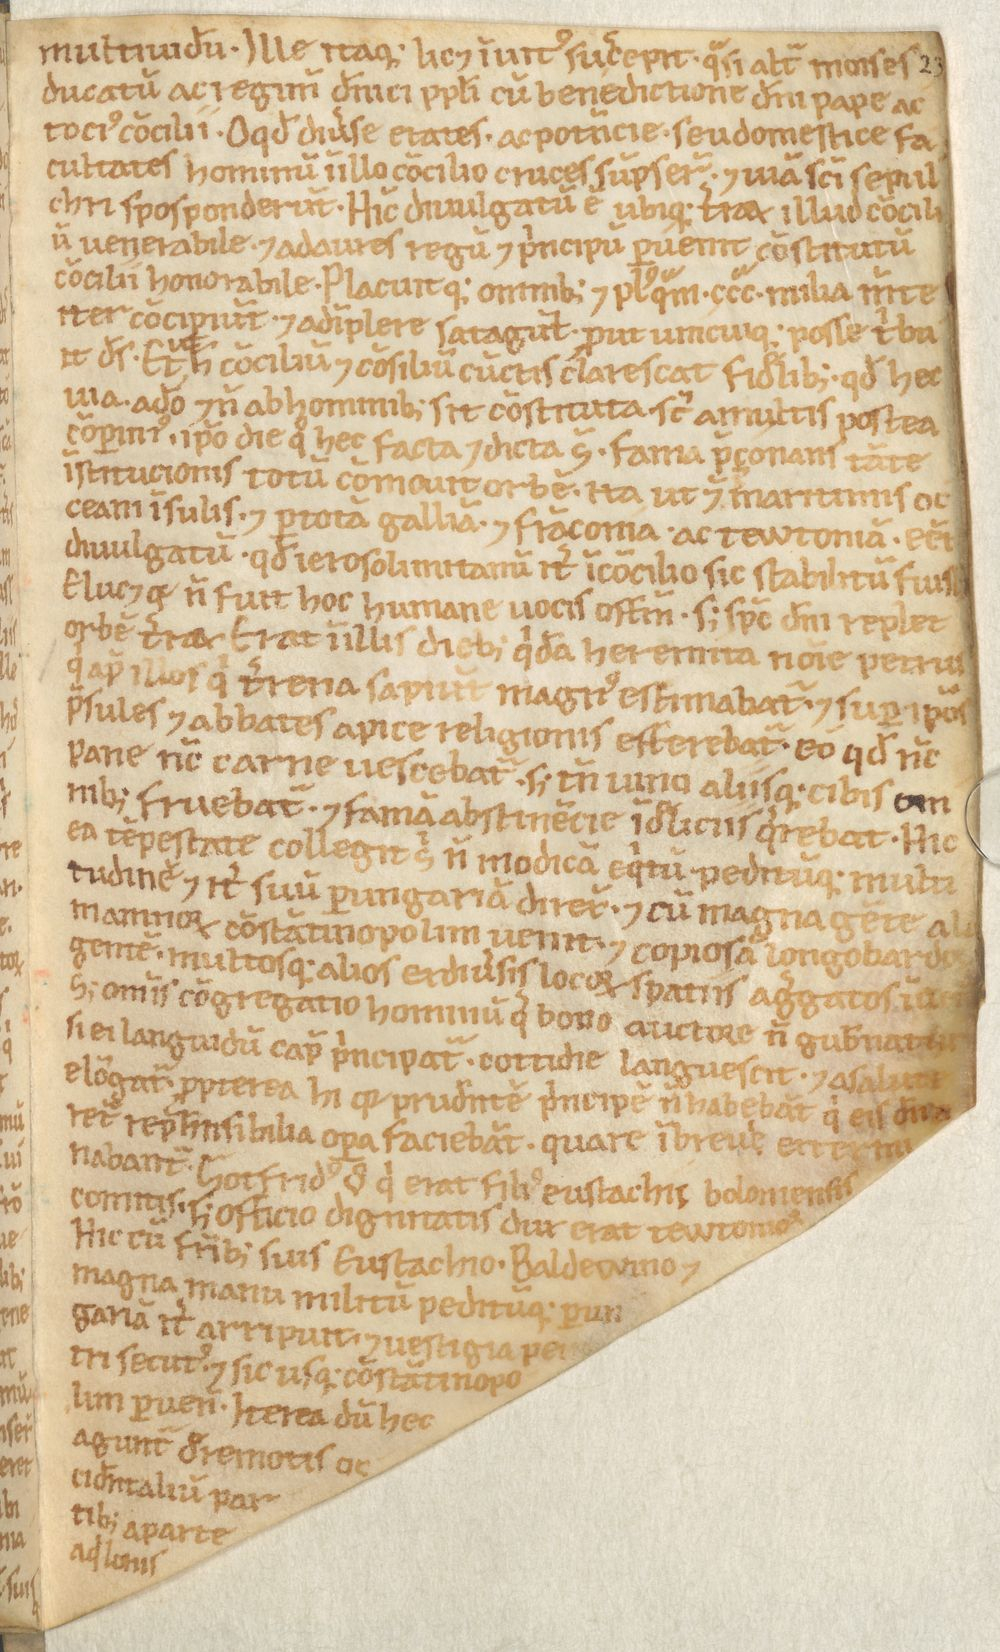 multitudī. Ille itaq; licꝫ īuit⁹ suscepit. q̄si alt̄ moises 23
ducatū ac regim̄ dn̄ici ppl̄i cū benedictione dn̄i pape ac
toci⁹ cōcilii. Oqd̄ diuerse etates. ac potn̄cie. seu domestice fa
cultates hominū īillo cōcilio cruces sūpser̄. ⁊ uiā sc̄i sepul
chri sposponderūt. Hic diuulgatū ē ubiq; t̄raꝝ illud cōcili
ū uenerabile. ⁊ adaures regū ⁊ p̄ncipū ꝑuenit cōstitutū
cōcilii honorabile. Placuitq; omnib; ⁊ pl⁹qͣm .ccc. milia m̄te
iter cōcipiūt. ⁊ adīplere satagūt. prout unicuiq; posse t̄bu
it ds̄. Et ut h̄ cōciliū ⁊ cōsiliū cūctis clarescat fidl̄ib; qd̄ hec
uia. adō ⁊ n̄ abhominib; sit cōstituta. sic̄ amultis postea
cōperim⁹. ipō die qͦ hec facta ⁊ dicta s̄. fama p̄conans tāte
īstitucionis totū cōmouit orbē. ita ut ⁊ ī maritimis oc
ceani īsulis. ⁊ ꝑtotā galliā. ⁊ frācoma. ac tewtoniā. eēt
diuulgatū. qd̄ ierosolimitanū it̄ īcōcilio sic stabilitū fuiss
Elucꝫ qͥ n̄ fuit hoc humane uocis offm̄. s; sp̄c dn̄i replet
orbē t̄raꝝ Erat īillis dieb; qͥdā heremita noīe petrus
qͥ ap̄ illos qͥ t̄rena sapiūt magn⁹ estimabat̄. ⁊ suꝑ ipōs
p̄sules ⁊ abbates apice religionis efferebat̄. eo qd̄ nc̄
pane nc̄ carne uescebat̄. s; tn̄ uino aliisq; cibis om
nib; fruebat̄. ⁊ famā abstinēcie īdl̄iciis q̄rebat. Hic
ea tēpestate collegit s̄ n̄ modicā eqͥtū peditūq; multi
tudinē ⁊ it̄ suū ꝑungariā direx̄. ⁊ cū magna gēte ala
mannoꝝ cōstātinopolim uenit. ⁊ copiosā longobardoꝝ
gentē. multosq; alios ediūsis locoꝝ spatiis aggegatos
S; omīs cōgregatio hominū q̄ bono auctore n̄ gubnatur
si ei languidū cap̄ p̄ncipat̄. cottidie languescit. ⁊ asalute
elōgat̄. ꝓpterea hi qͥ prudn̄tē p̄ncipē n̄ habebāt qͥ eis
ret̄ rep̄hn̄sibilia oꝑa faciebāt. quare ībreuē
nabant̄. Gotfrid⁹ ū qͥ erat fili⁹ eustachiꝭ boloniensis
comitis. s; officio dignitatis dux erat tewtonicꝰ
Hic cū frīb; suis Eustachio. Baldewino ⁊
magna manu militū peditūq; ꝑun
gariā it̄ arripuit. ⁊ uestigia
tri secut⁹. ⁊ sic usq; cōstātinopo
lim ꝑuen̄. Iterea dū hec
agunt̄ deremotis oc
cidn̄taliū par
tib; aparte
aqͥlonis